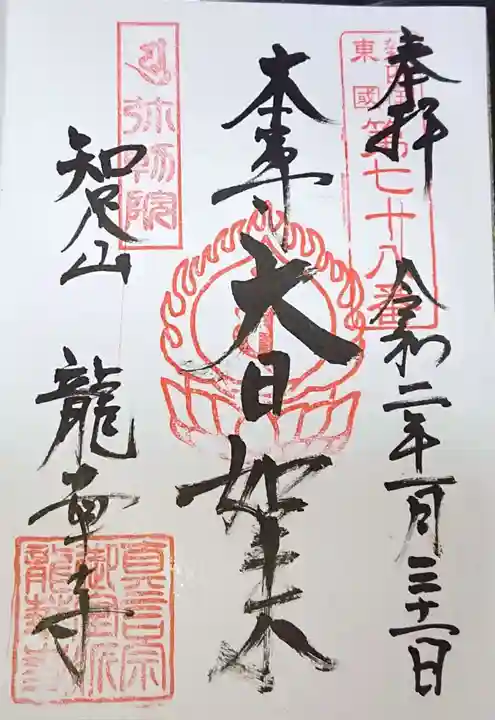 奉拝
令和二年一月三十一日
東國
第七十八番
本尊
大日如来
弥勒院
智足山
龍華寺
真言宗
御室派
龍華寺